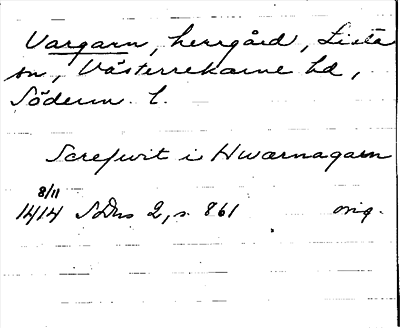 Vargarn, herrgård, Lista
sn, Västerrekarne hd,
Söderm. l.
Screfwit i Hwarnagarn
8/11
1414 SDns 2, s. 861 orig.